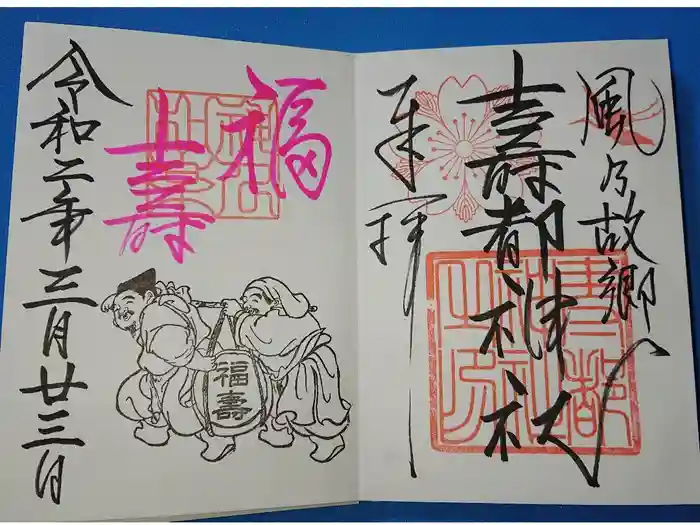 風乃故郷へ
壽都神社
奉拝
福
壽
福壽
令和二年三月廿三日